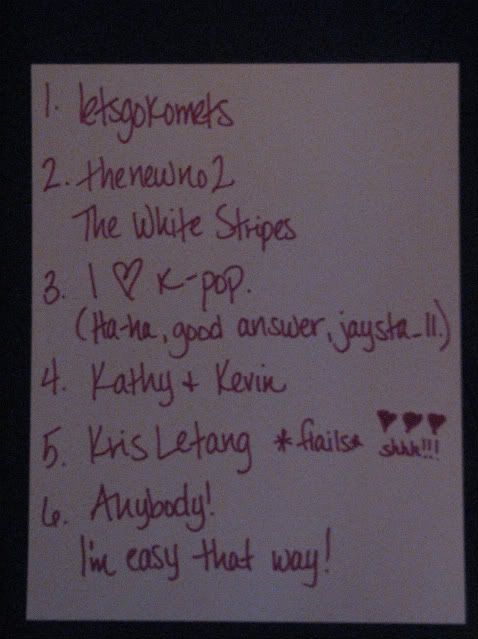 1. letsgokomets
2. thenewno2
The White Stripes
3. I ♡ K-pop.
(Ha-ha, good answer, jaysta_11.)
4. Kathy + Kevin
5. Kris Letang *flails* ♥♥♥
shhh!!!
6. Anybody!
I'm easy that way!